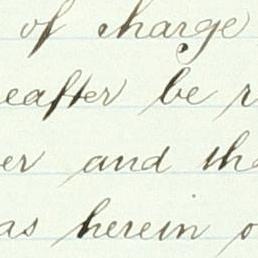 of charge
eafter be r
er and the
as herein o